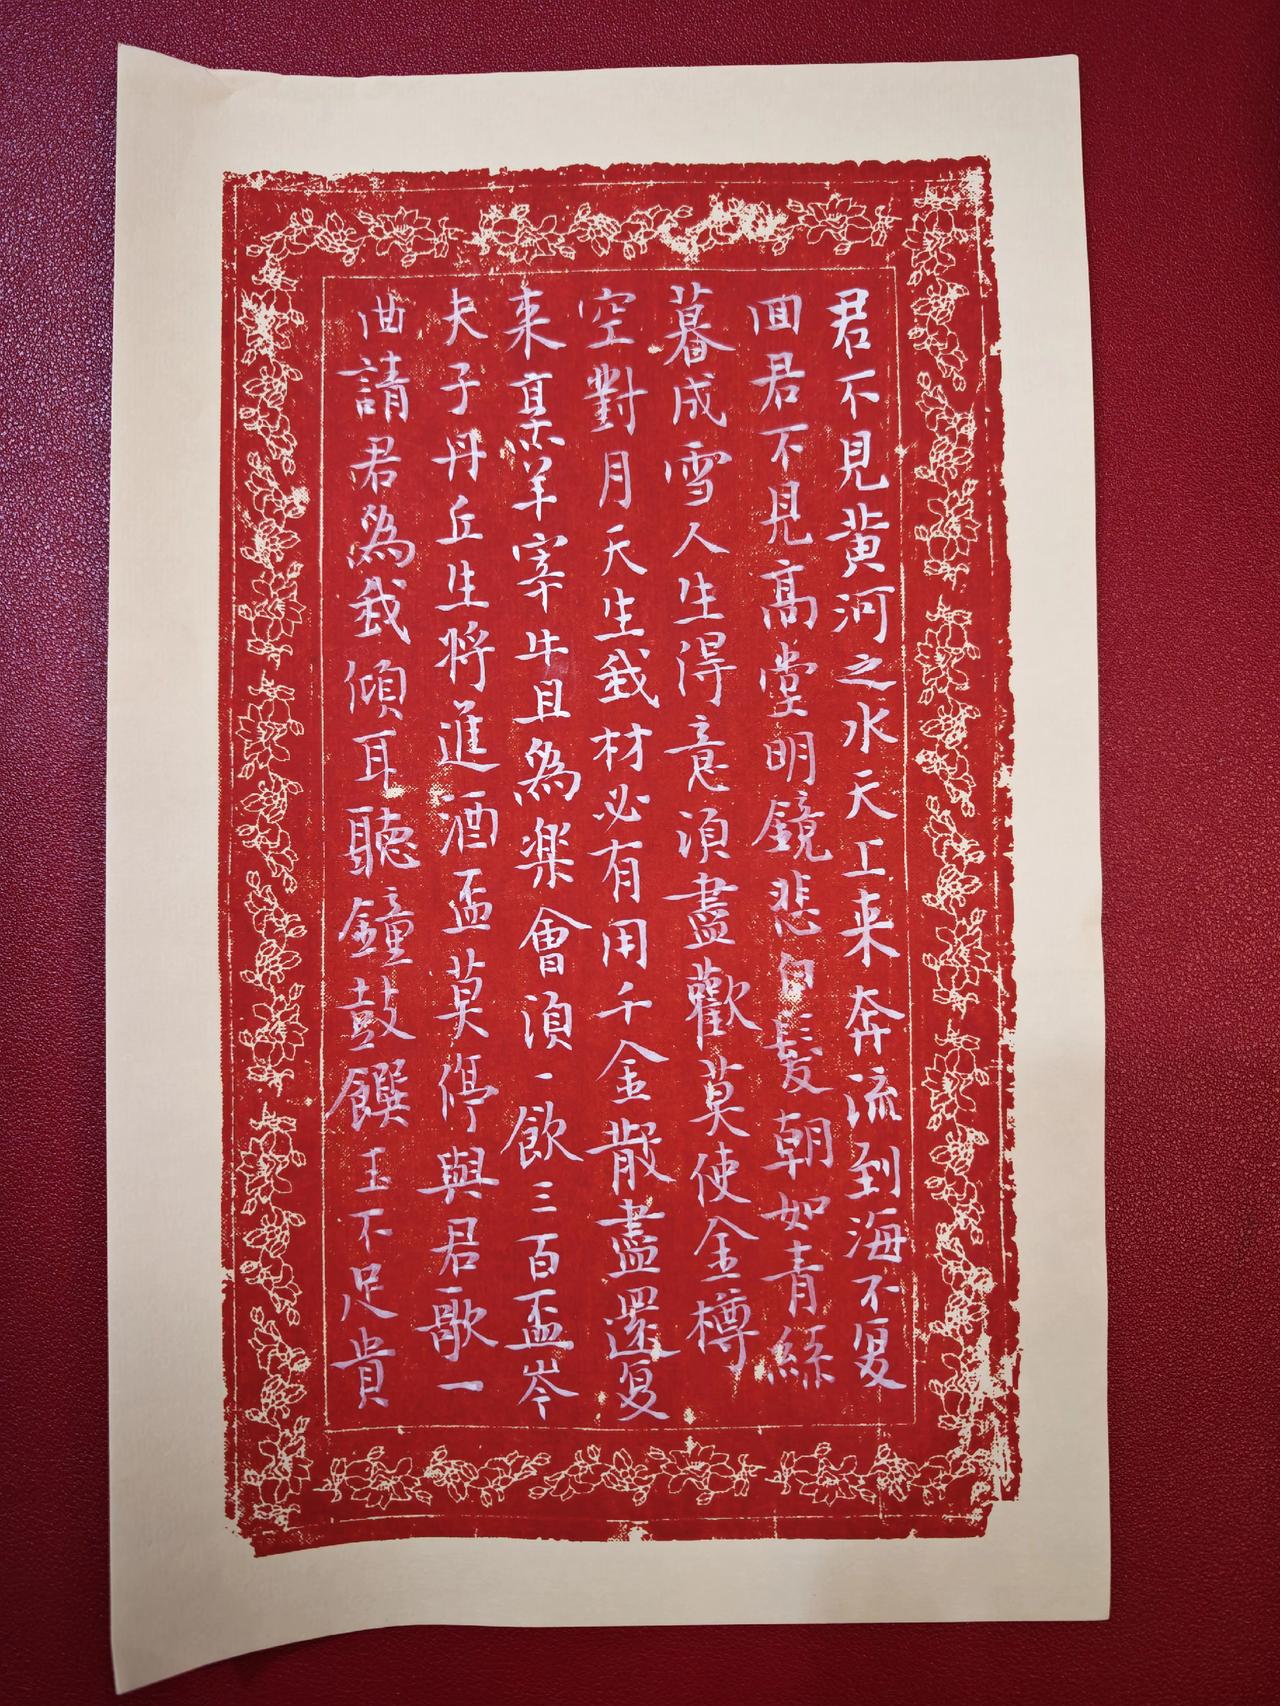 君不見黄河之水天上来奔流到海不复
回君不見高堂明鏡悲白髮朝如青絲
暮成雪人生得意須盡歡莫使金樽
空對月天生我材必有用千金散盡還复
来烹羊宰牛且為樂會須一飲三百盃岑
夫子丹丘生将進酒盃莫停與君歌一
曲請君為我傾耳聽鐘鼓饌玉不足貴